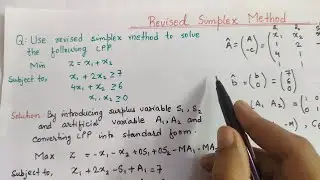 Revised Simplex Method
Q: Use revised simplex method to solve
the following LPP
Min Z = x₁ + x₂
Subject to, x₁ + 2x₂ ≥ 7
4x₁ + x₂ ≥ 6
x₁, x₂ ≥ 0
Solution: By introducing surplus variable S₁, S₂
and artificial variable A₁, A₂ and
converting LPP into standard form.
Max Z = -x₁ - x₂ + 0S₁ + 0S₂ - MA₁ - MA₂
Subject to, x₁ + 2x₂ - S₁ + A₁ = 7
Â = (A
-c) =
x₁ x₂
1 2
4 1
1 1
b̂ = (b
0) = (7
6
0)